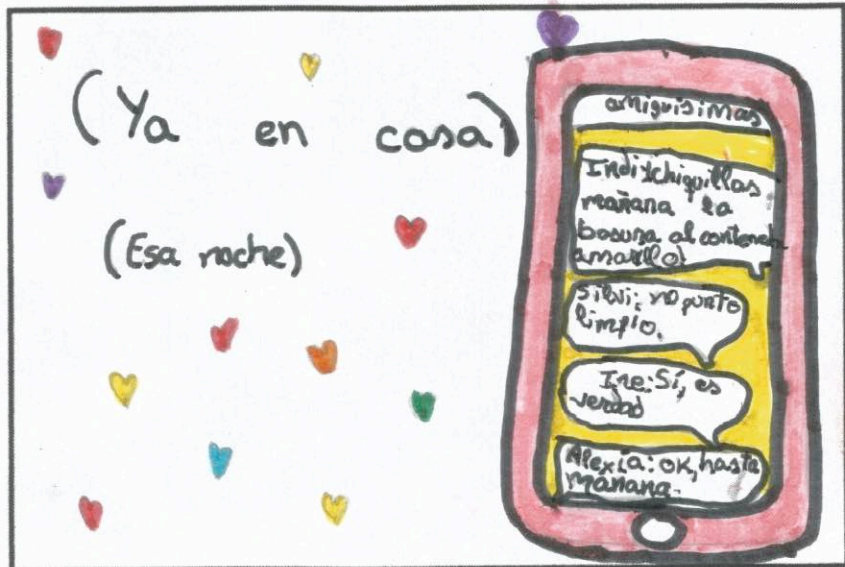 (Ya en casa)
(Esa noche)
amiguisimas
Indi: chiquillas
mañana la
basura al
amarillo!
Silvi: no punto
limpio.
Ine: Sí, es
verdad
Alexia: OK, hasta
mañana.